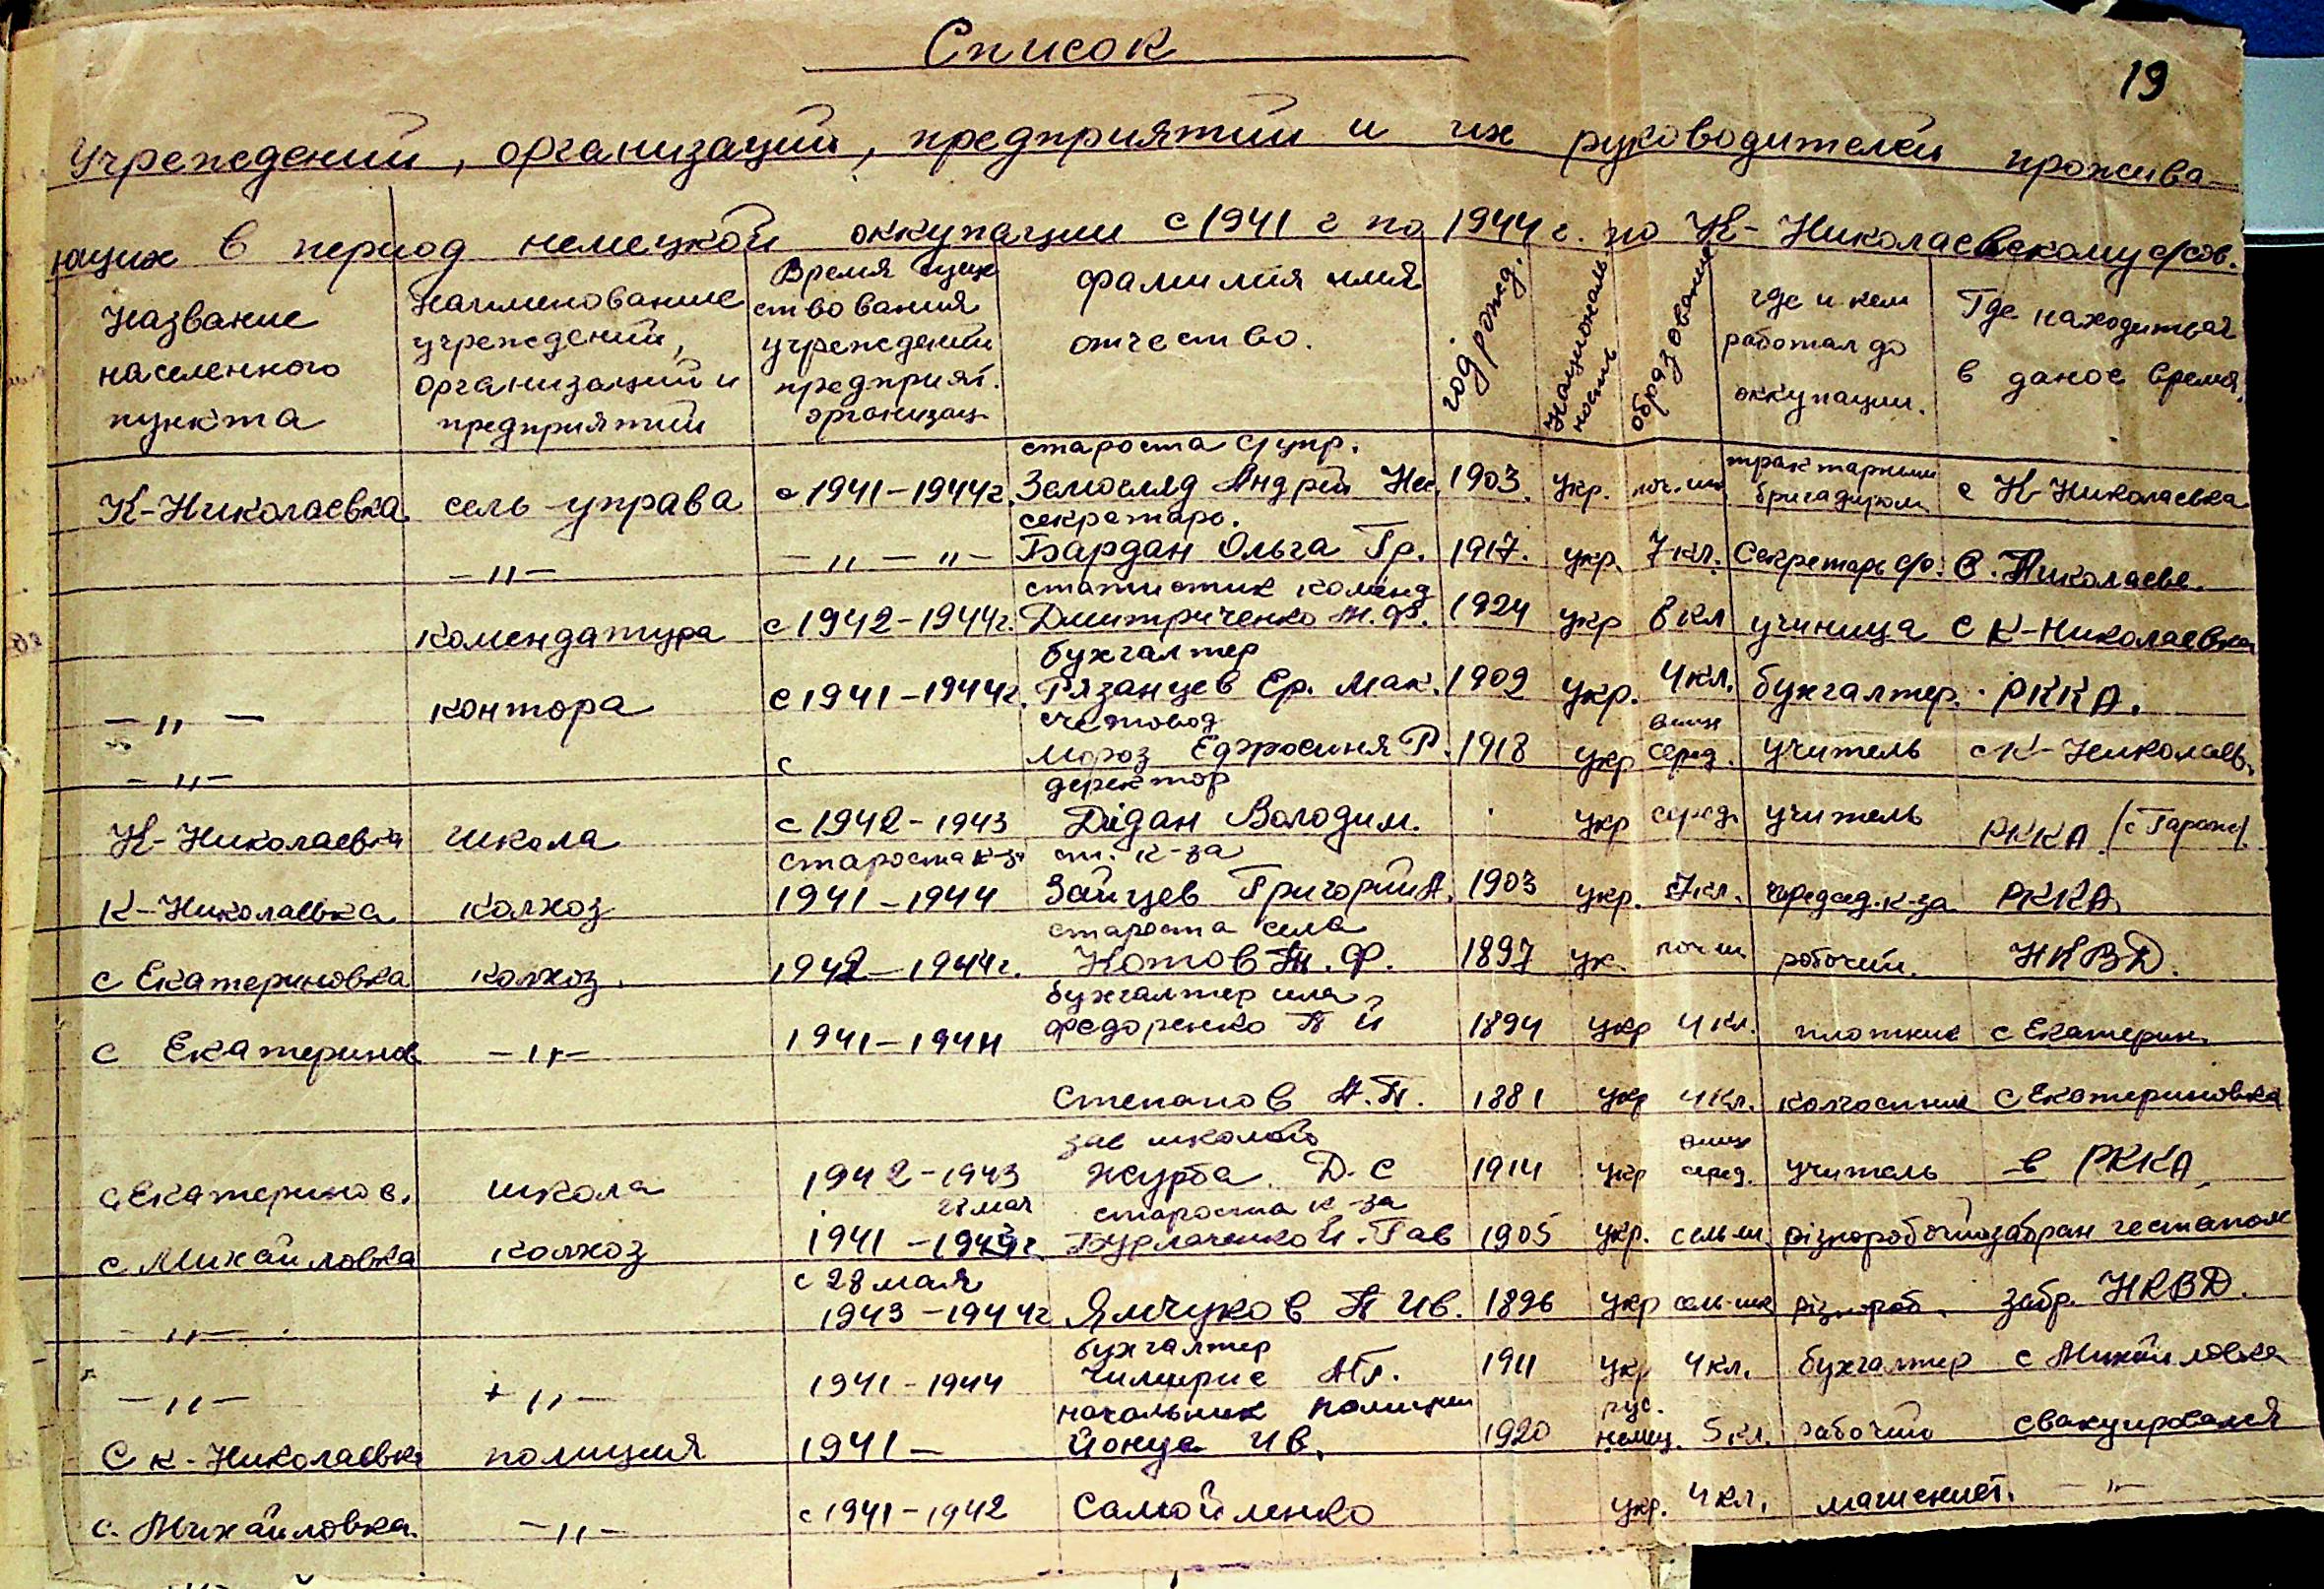 Список
19
Учреждений, организаций, предприятий и их руководителей прожива-
ющих в период немецкой оккупации с 1941 г по 1944 г. по К-Николаевскому с/сов.
Название населенного пункта
Наименование учреждений, организаций и предприятий
Время суще ствования учреждений предприят. организац.
фамилия имя отчество.
год рожд.
Националь ность
образование
где и кем работал до оккупации.
Где находиться в даное время.
староста с/упр.
К-Николаевка сель управа с 1941-1944г. Земогляд Андрей 1903. укр. поч. шк. трактарным бригадиром с К-Николаевка
секретарь.
-"- -"-"- Бардан Ольга Гр. 1917. укр. 7 кл. Секретарь с/с. с. Николаевк.
статистик коменд
комендатура с 1942-1944г. Дмитриченко М.Ф. 1924 укр 8 кл учиница с К-Николаевка
бухгалтер
-"- контора с 1941-1944г. Рязанцев Ер. Мак. 1902 укр. 4 кл. бухгалтер. РККА.
счетовод
-"- с Мороз Ефросиня Р. 1918 укр серед. учитель с К-Николаев.
деректор
К-Николаевка школа с 1942-1943 Дідан Володим. укр серед. учитель РККА
староста к-за ст. к-за
К-Николаевка колхоз 1941-1944 Зайцев Григорий А. 1903 укр. 7 кл. председ. к-за РККА
староста села
с Екатериновка колхоз. 1942-1944г. Котов М.Ф. 1897 ук. поч ш робочий. НКВД.
бухгалтер села
с Екатеринов -"- 1941-1944 Федоренко П И 1894 укр 4 кл. плотник с Екатерин.
Степанов А.П. 1881 укр 4 кл. колхосник с Екатериновка
зав школою
с Екатеринов. школа 1942-1943 Журба Д.С 1914 укр серед. учитель в РККА
28 мая староста к-за
с Михайловка колхоз 1941-1943г. Бурлаченко И. Гав 1905 укр. сель ш. різноробочий забран гестапом
с 28 мая
-"- 1943-1944г Ямчуков П Ив. 1896 укр сель-шк різнороб. забр. НКВД.
бухгалтер
-"- -"- 1941-1944 Чимирис 1911 укр 4 кл. бухгалтер с Михайловка
начальник полиции рус.
С К-Николаевка полиция 1941- Ив. 1920 немец. 5 кл. рабочий евакуировался
с. Михайловка. -"- с 1941-1942 Самойленко укр. 4 кл. машенист. -"-